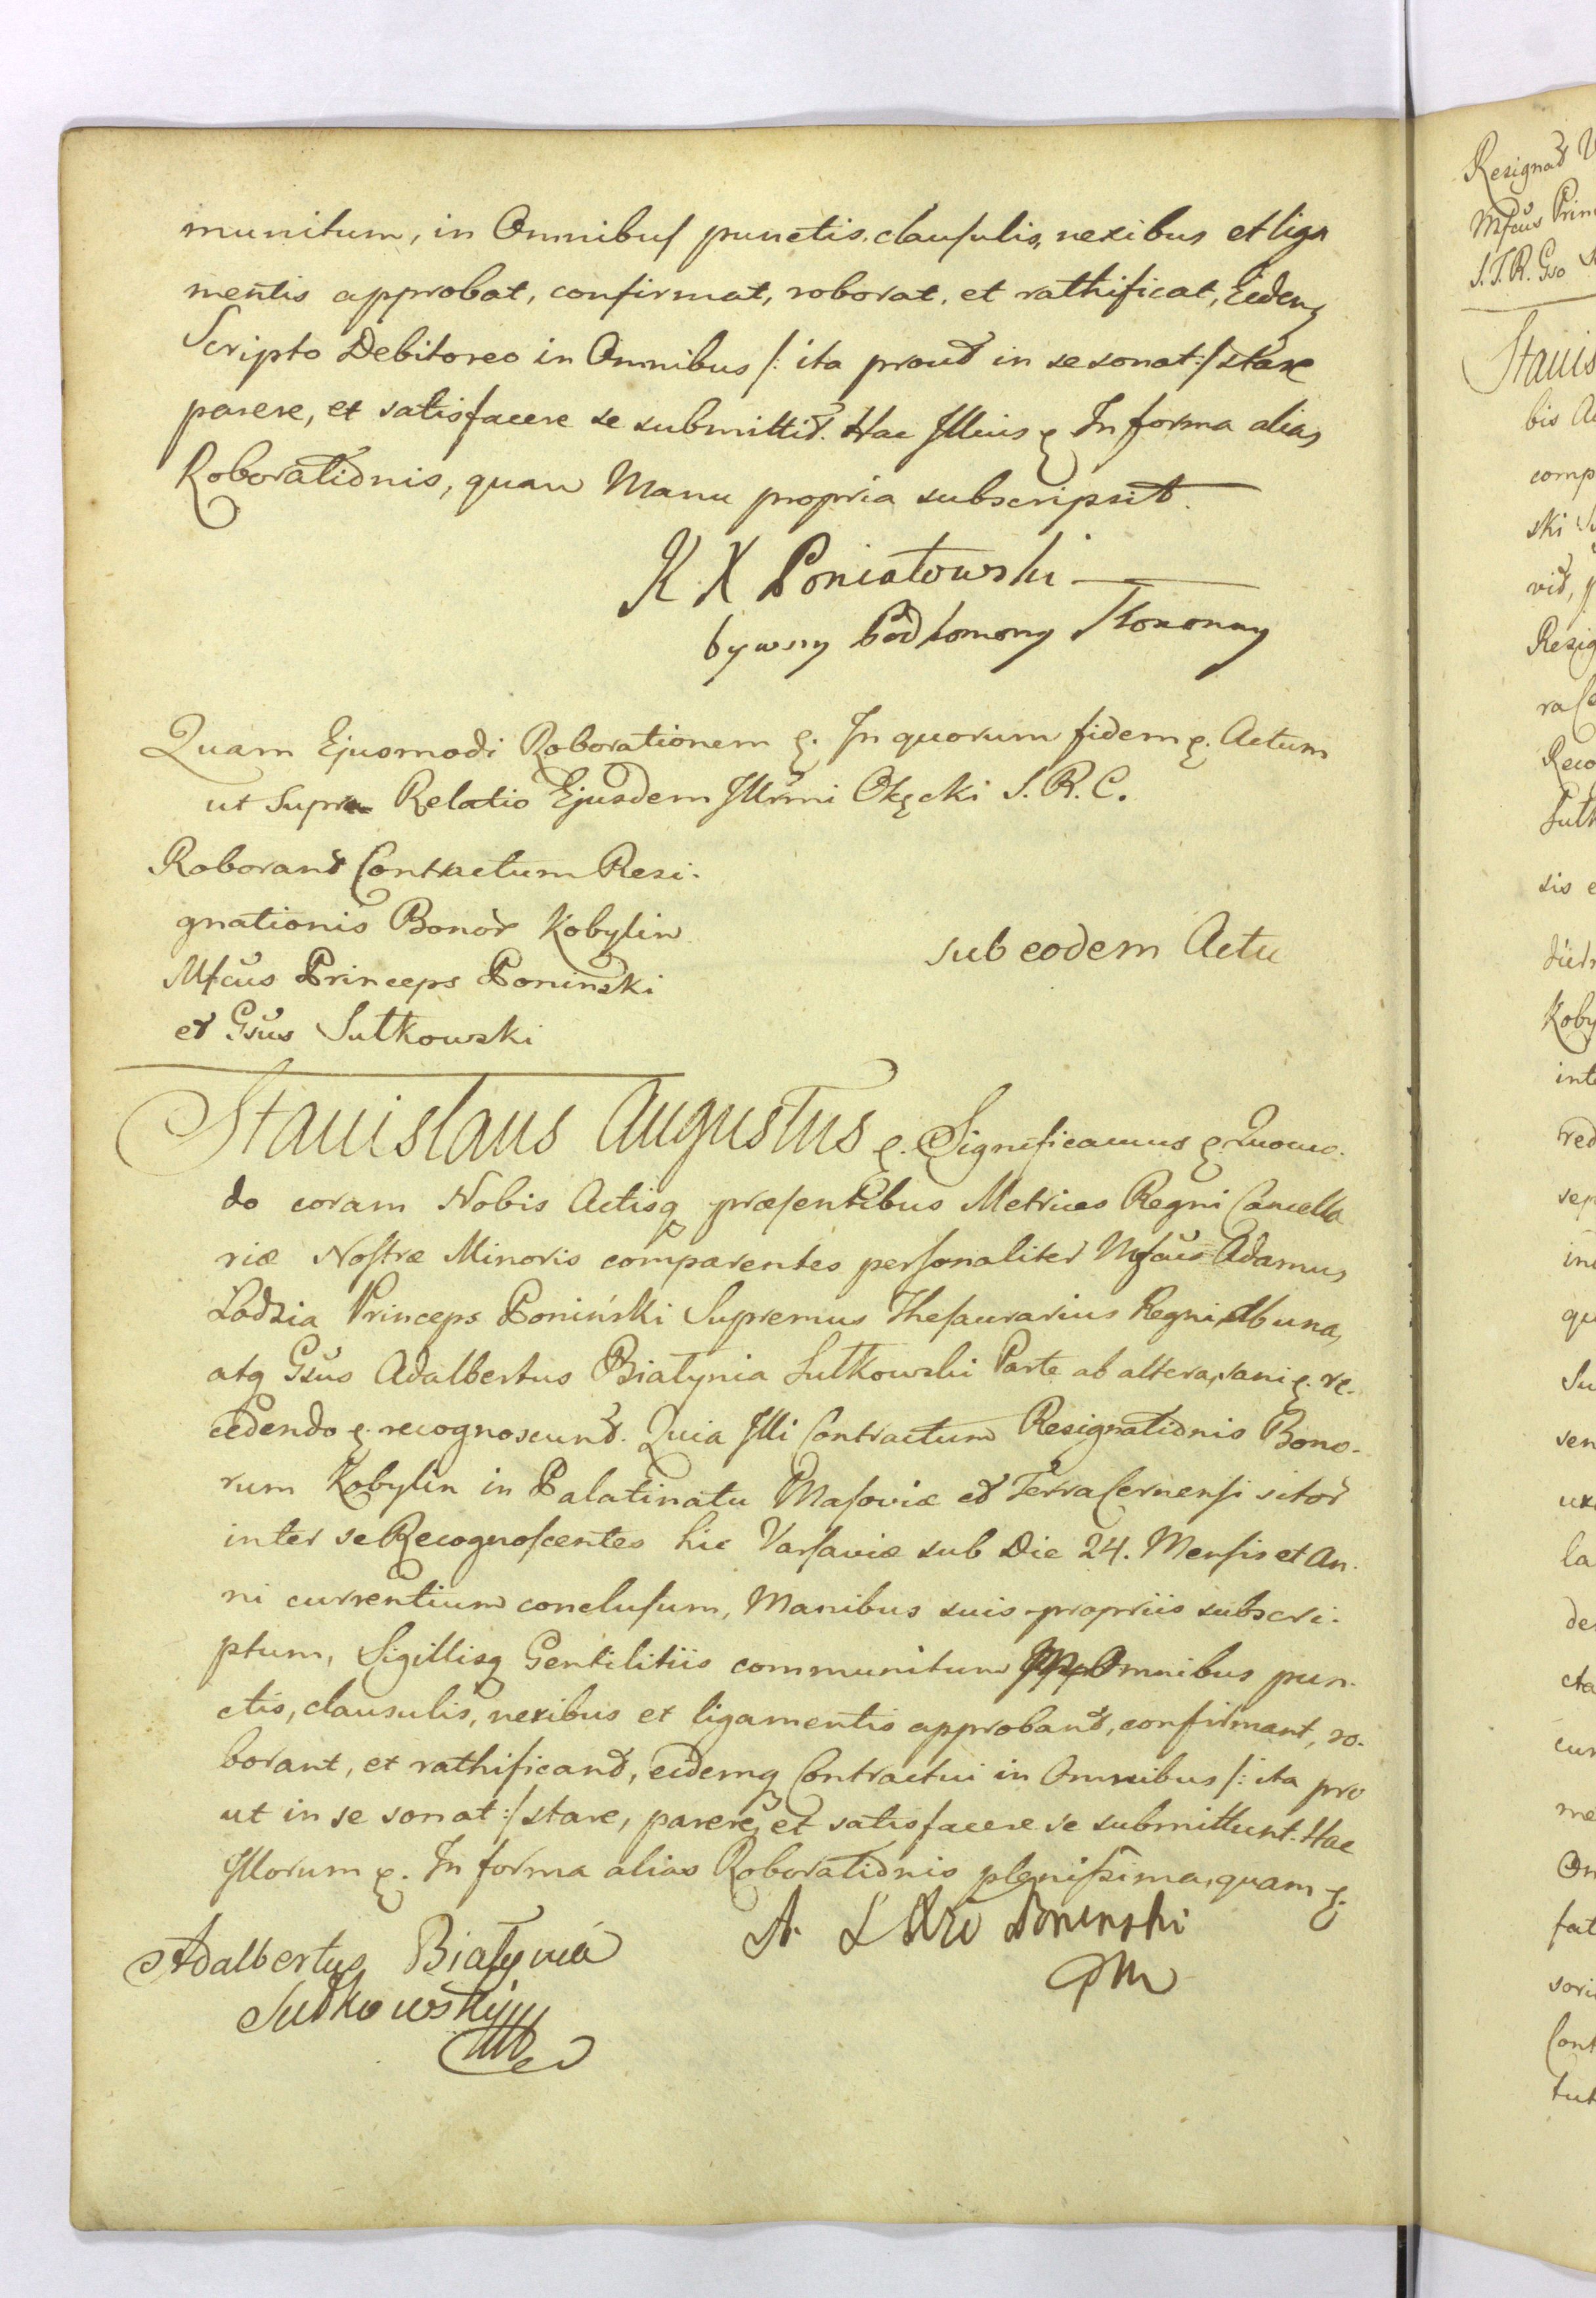 munitum, in Omnibus punctis, clausulis, nexibus et liga
mentis approbat, confirmat, roborat, et rathificat, Eidemq
Scripto Debitoreo in Omnibus /: ita prout in se sonat :/ stare
parere, et satisfacere se submittit. Hac Illius &. In forma alias
Roborationis, quam Manu propria subscripsit.
K X Poniatowski
bywszy Podkomorzy Koronny
Quam Ejusmodi Roborationem &. In quorum fidem &. Actum
ut Supra Relatio Ejusdem Illrmi Okęcki S. R. C.
Roborant Contractum Resi-
gnationis Bonor Kobylin
Mfcus Princeps Poninski
et Gsus Sutkowski
sub eodem Actu
Stanislaus Augustus &. Significamus &. Quomo-
do coram Nobis Actisq præsentibus Metrices Regni Cancella
riæ Nostræ Minoris comparentes personaliter Mfcus Adamus
Lodzia Princeps Poniński Supremus Thesaurarius Regni, Ab una,
atq Gsus Adalbertus Białynia Sutkowski Parte ab altera, sani &. re-
cedendo &. recognoscunt. Quia Illi Contractum Resignationis Bono-
rum Kobylin in Palatinatu Masoviæ et Terra Cernensi sitor
inter se Recognoscentes hic Varsaviæ sub Die 24. Mensis et An-
ni currentium conclusum, Manibus suis propriis subscri-
ptum, Sigillisq Gentilitiis communitum Omnibus pun-
ctis, clausulis, nexibus et ligamentis approbant, confirmant, ro-
borant, et rathificant, eidemq Contractui in Omnibus /: ita pro
ut in se sonat :/ stare, parere, et satisfacere se submittunt. Hac
Illorum &. In forma alias Roborationis plenissima, quam &.
A. Ł Xże Poninski
PM
Adalbertus Białynia
Sutkowskj
Resignat
Mfcus Prin
S. T. R. Gso
Stanis
bis A
comp
ski
vit,
Resig
ra
Reco
Sutk
sis e
Koby
inte
red
sep
in
qu
Su
sen
ux
la
de
cta
cur
me
On
fat
sori
Cont
tut